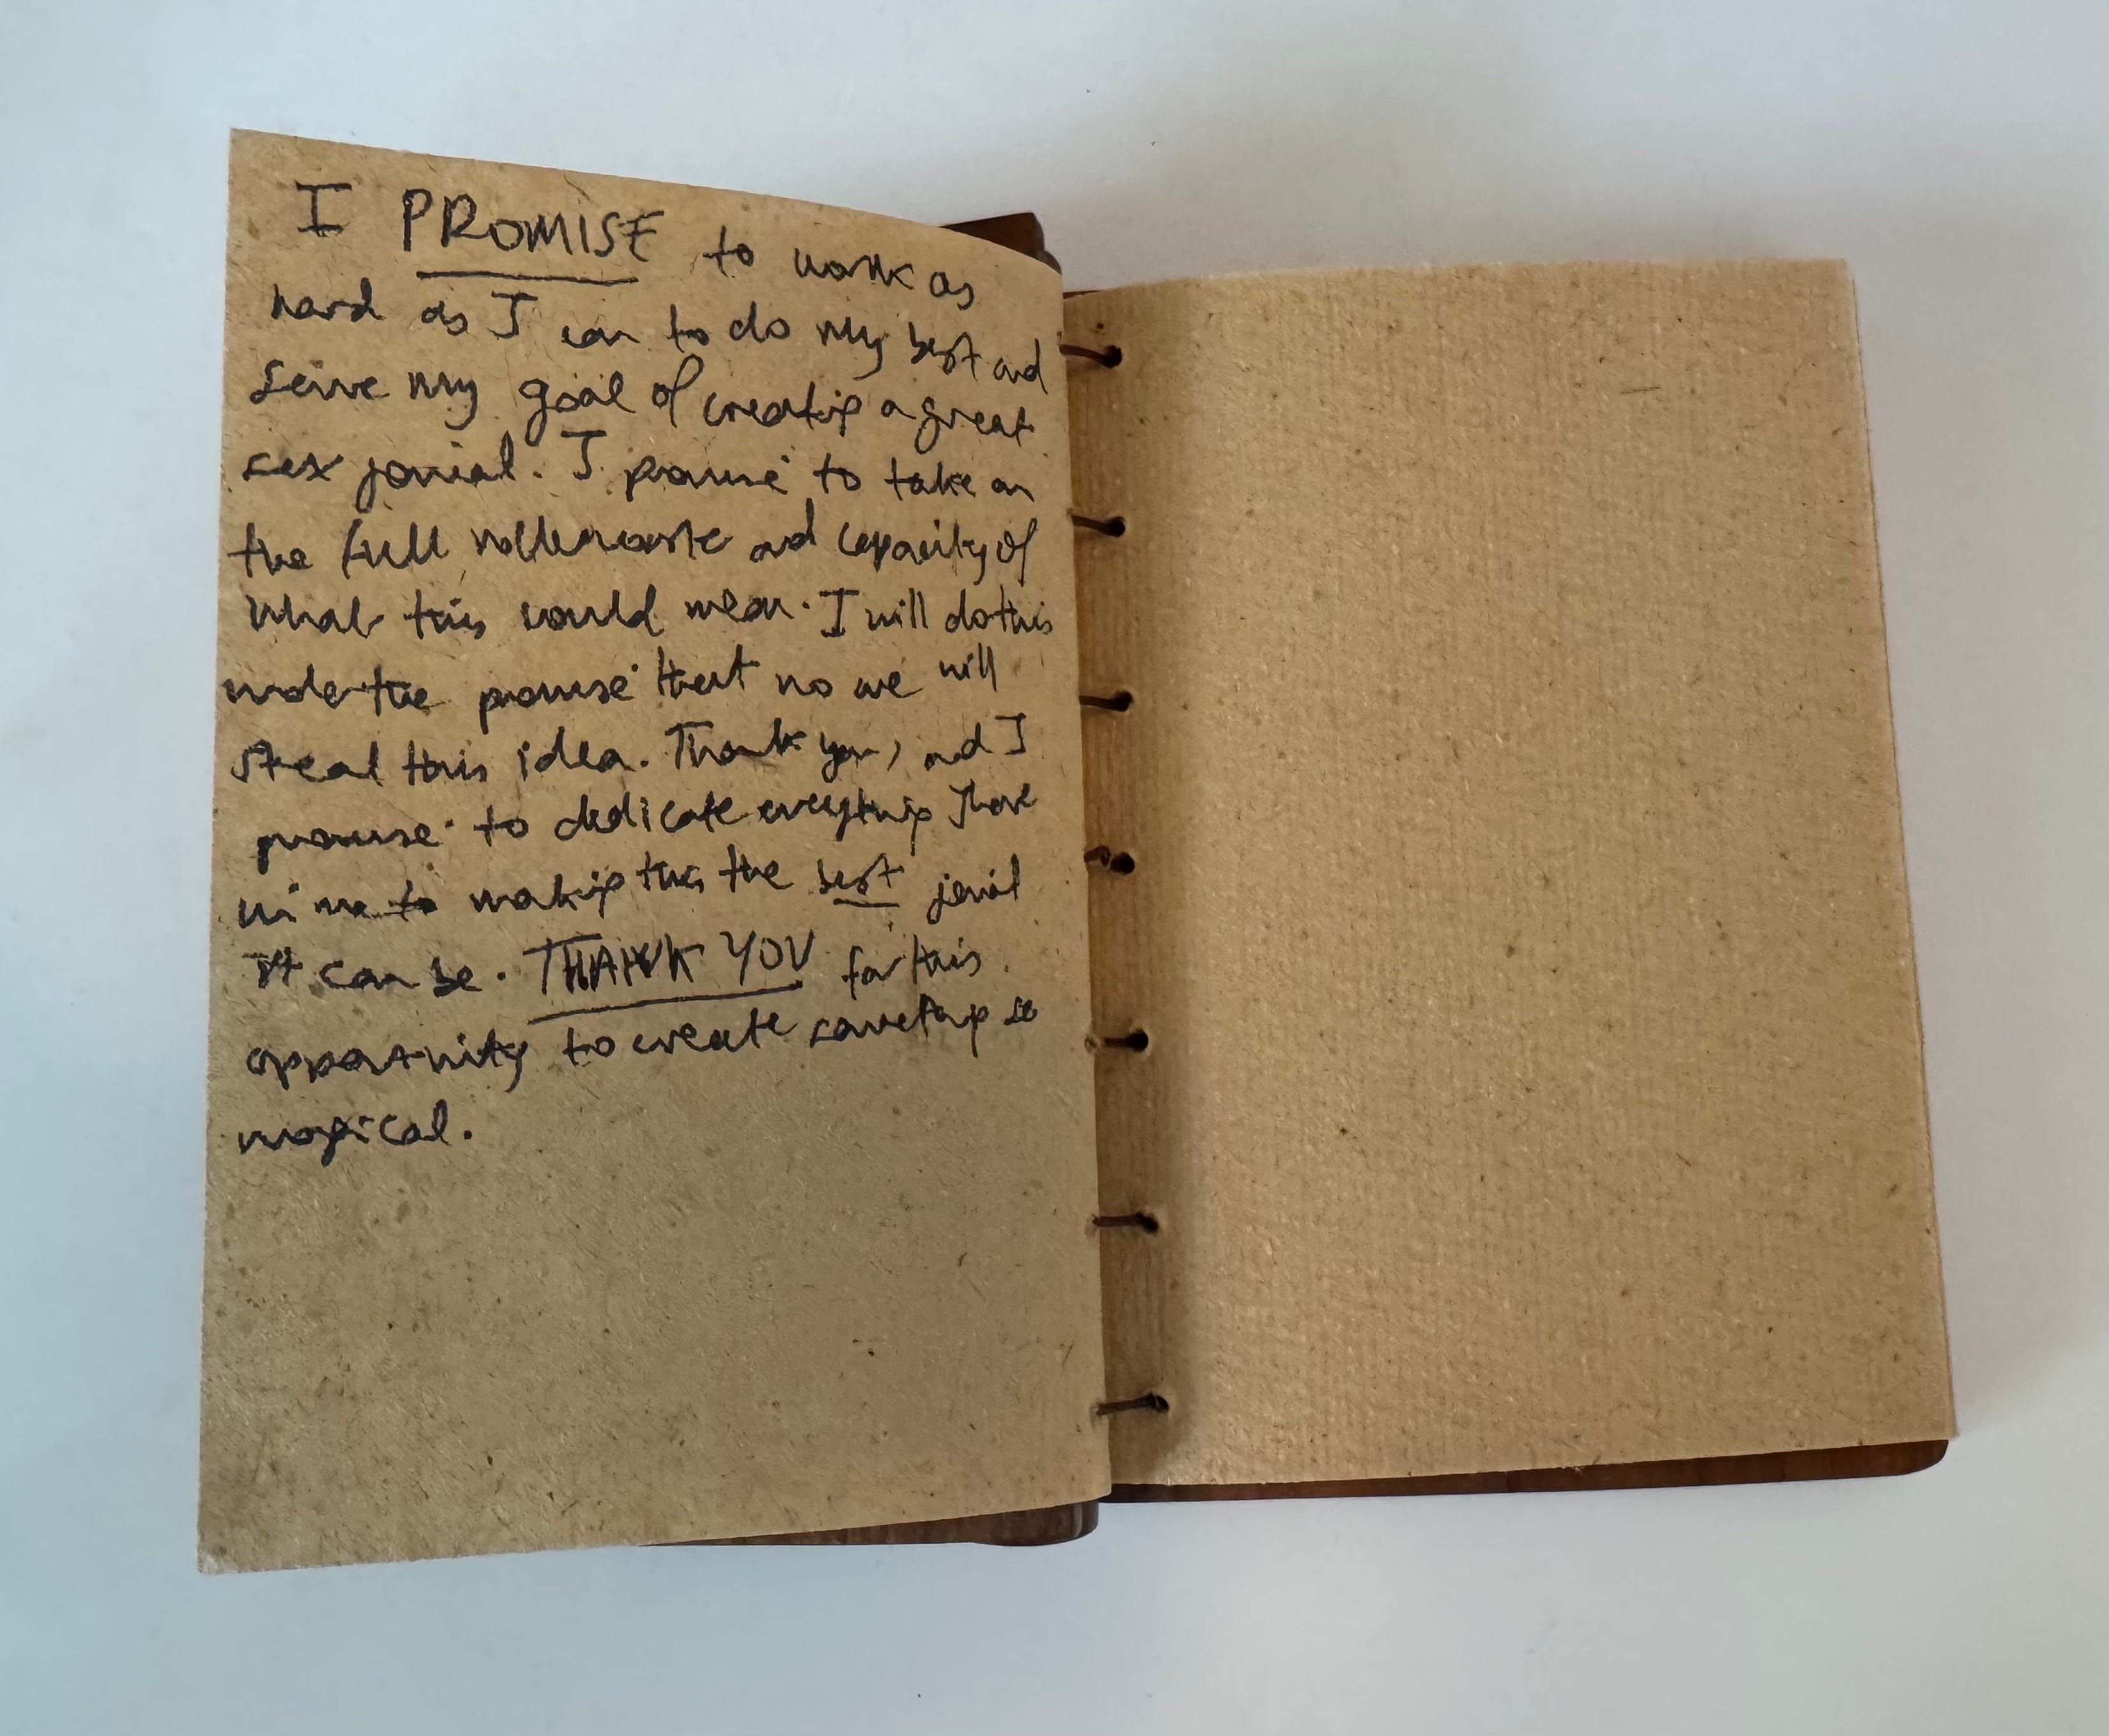 I PROMISE to work as
hard as I can to do my best and
serve my goal of creating a great
sex jornal. I promise to take on
the full and capacity of
what this would mean. I will do this
under the promise that no one will
steal this idea. Thank you, and I
promise to dedicate everything I have
in me to making this the best jornal
it can be. THANK YOU for this
opportunity to create something so
magical.